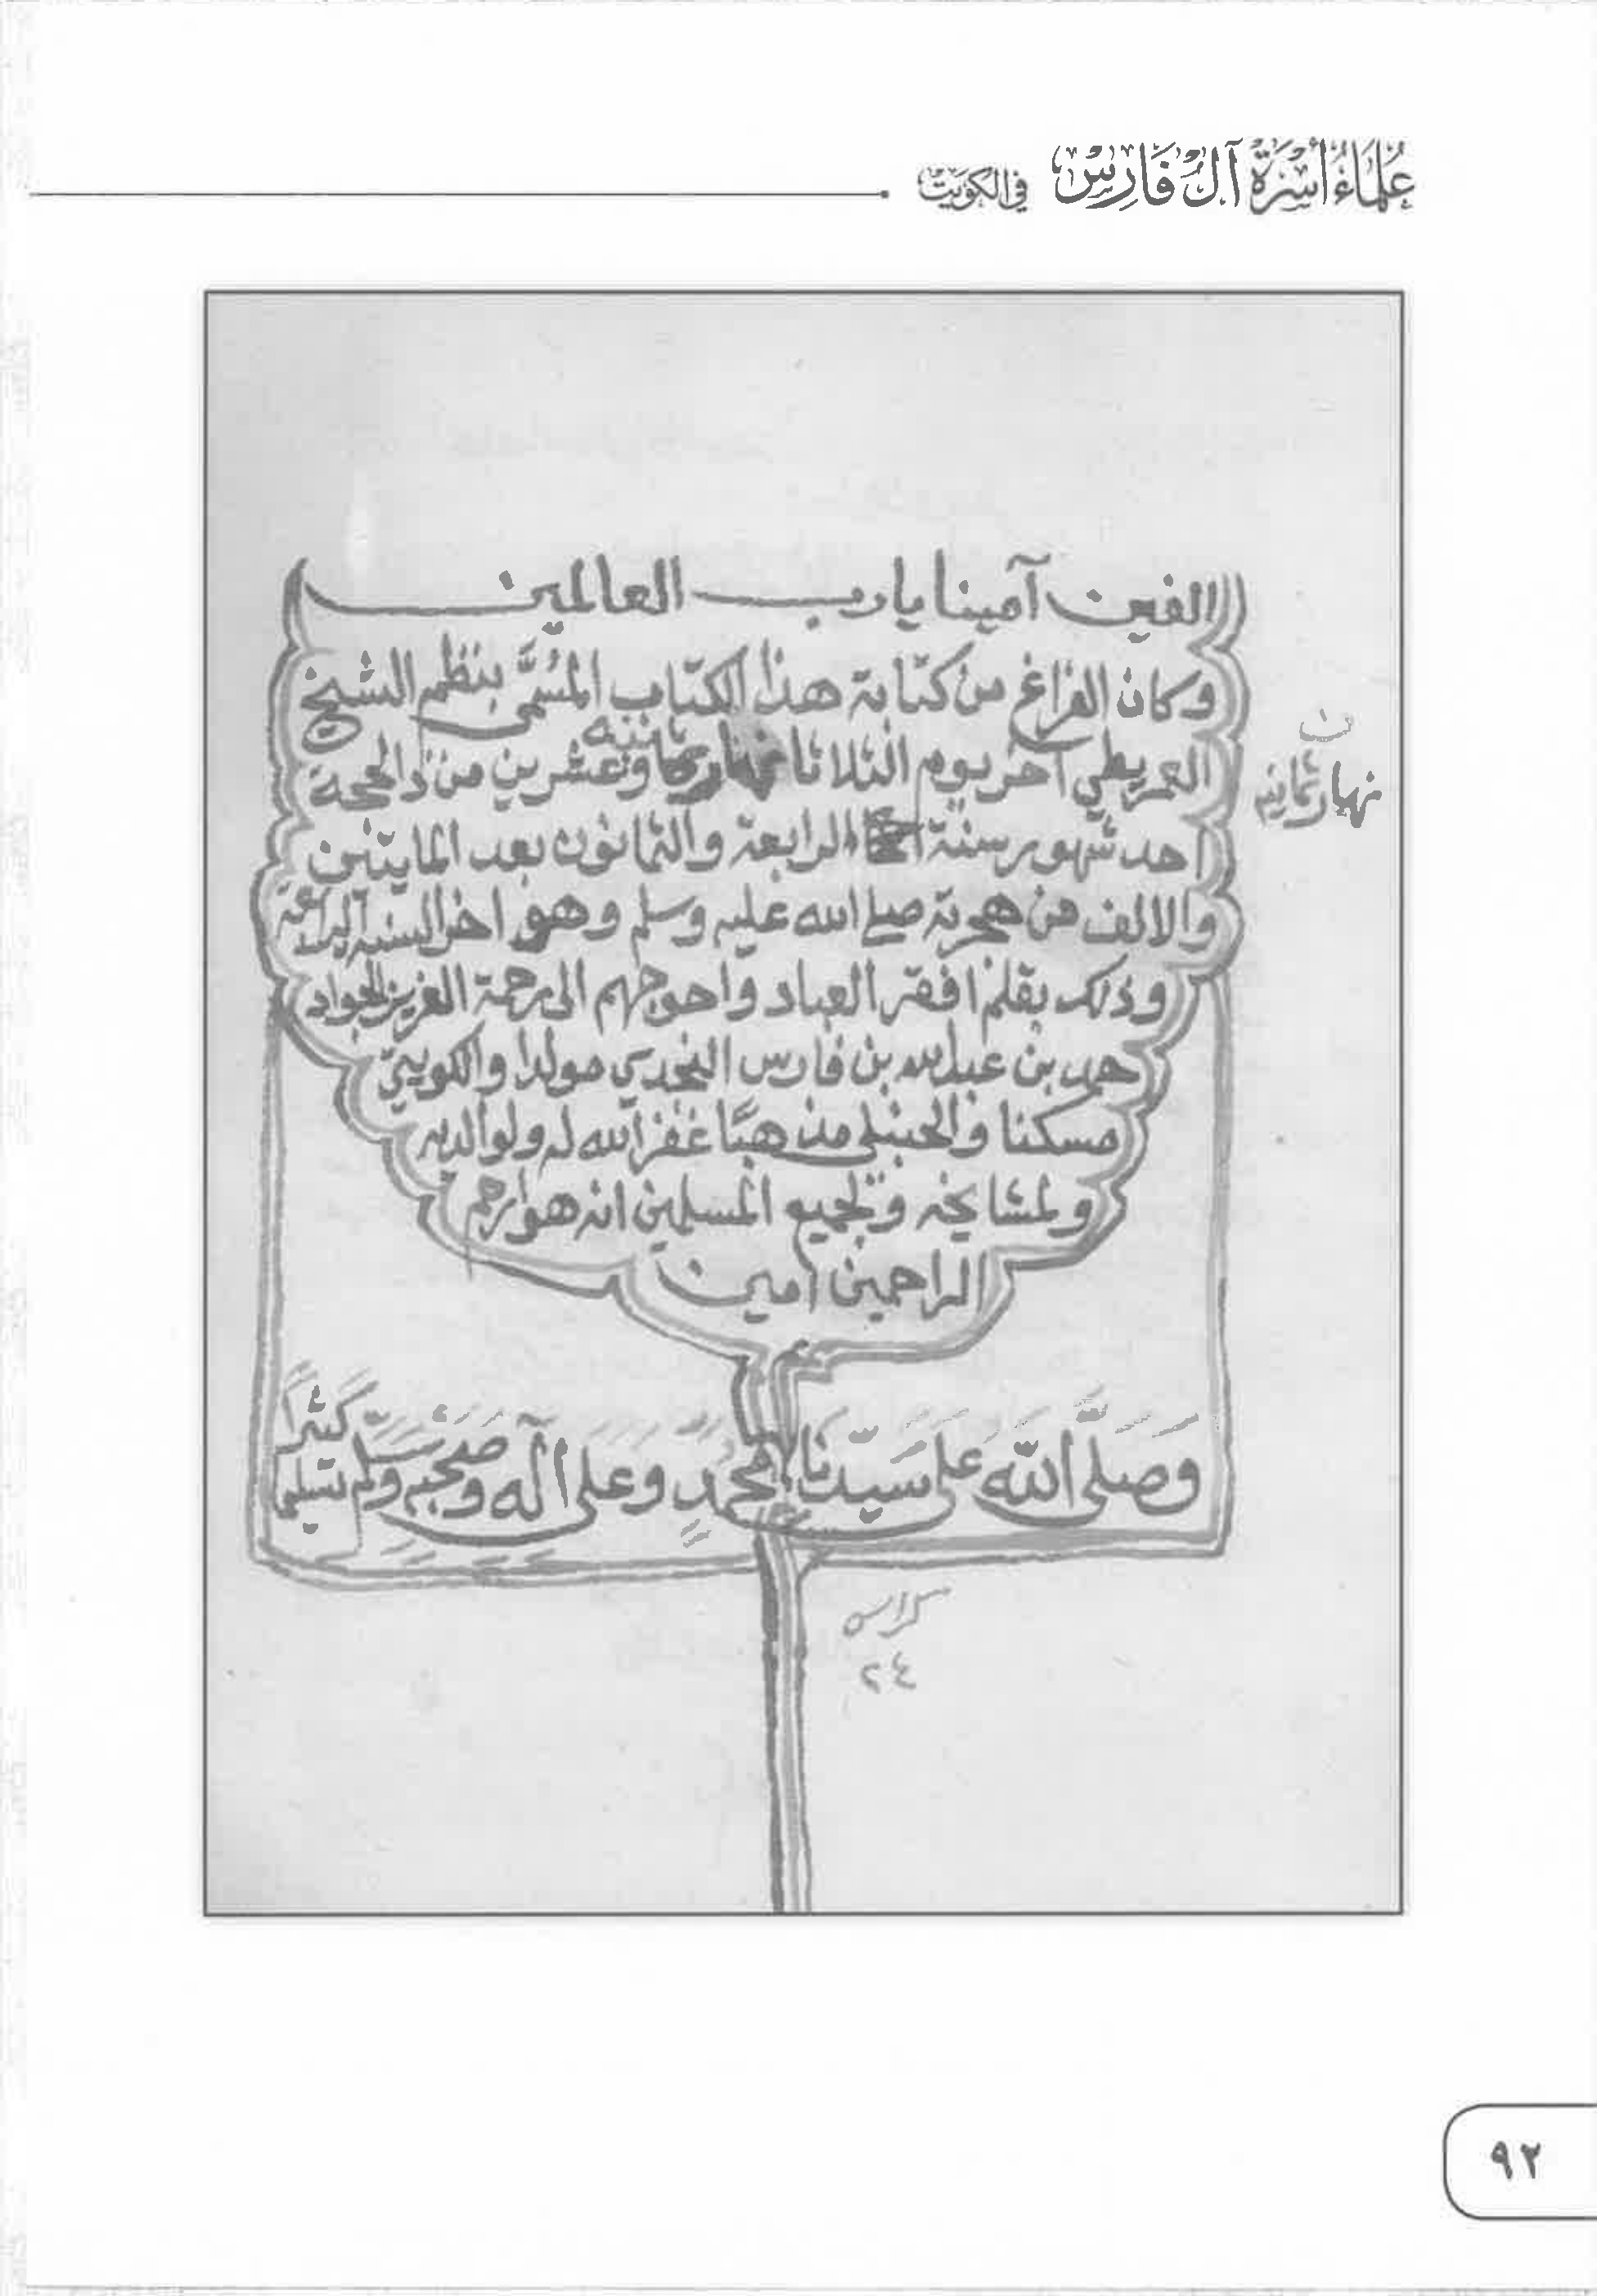 عُلَمَاءُ أُسْرَةِ آلِ فَارِسٍ في الكويت
الفين آمينا يا رب العالمين
وكان الفراغ من كتابة هذا الكتاب المسَمَّى بنظم الشيخ
العمريطي آخر يوم الثلاثا نهار ثمانيه وعشرين من ذالحجة
ن
نهار ثمانيه
احد شهور سنة الرابعة والثمانون بعد المايتين
والالف من هجرية صلى الله عليه وسلم وهو اخر السنه الرابعة
وذلك بقلم افقر العباد واحوجهم الى رحمة العزيز الجواد
حمد بن عبدالله بن فارس النجدي مولدا والكويتي
مسكنا والحنبلي مذهبًا غفر الله له ولوالديه
ولمشايخه ولجميع المسلمين انه هو ارحم
الراحمين امين
وَصَلَّى اللّه عَلى سَيّدنَا مُحمدٍ وعَلى آله وصَحْبِه وسَلّم تسليما كَثيرًا
كراس
٢٤
٩٢